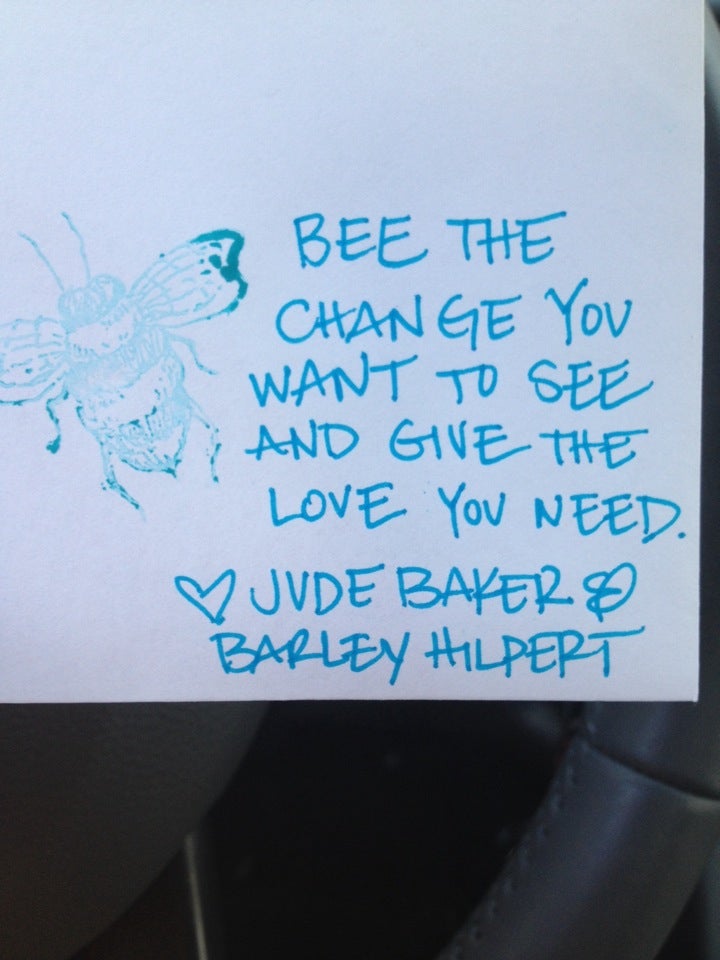 BEE THE
CHANGE YOU
WANT TO SEE
AND GIVE THE
LOVE YOU NEED.
♡ JUDE BAKER &
BARLEY HILPERT